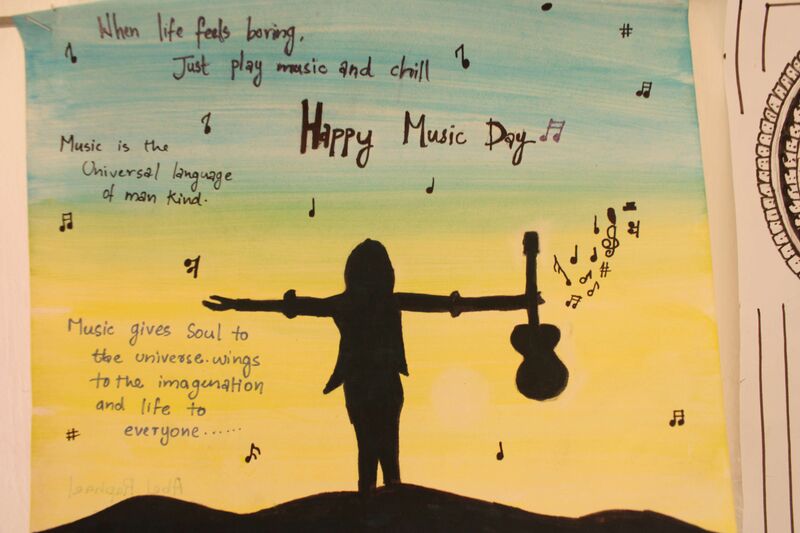 When life feels boring,
Just play music and chill
Happy Music Day
Music is the
Universal language
of man kind.
Music gives Soul to
the universe.wings
to the imagination
and life to
everyone......
Abel Raphael